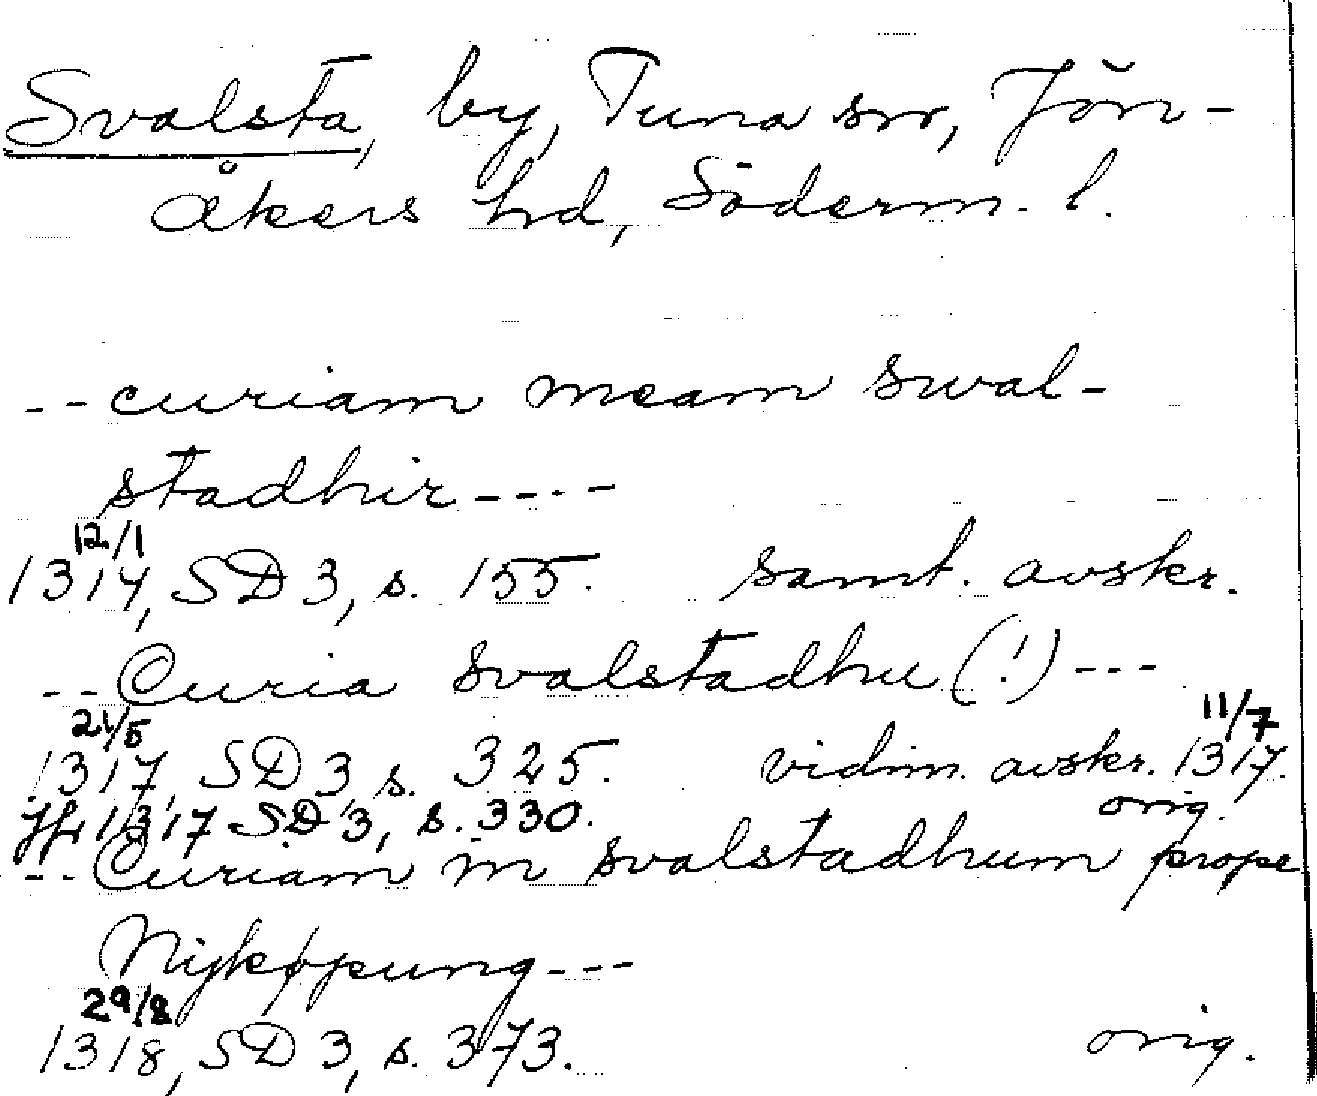 Svalsta, by, Tuna sn, Jön-
åkers hd, Söderm. l.
-- curiam meam swal-
stadhir ----
12/1
1314, SD 3, s. 155. samt. avskr.
-- Curia svalstadhu (!) ---
21/5 11/7
1317, SD 3, s. 325. vidim. avskr. 1317.
Jfr 1317 SD 3, s. 330. orig.
-- Curiam in svalstadhum prope
Nijkøpung ---
29/8
1318, SD 3, s. 373. orig.